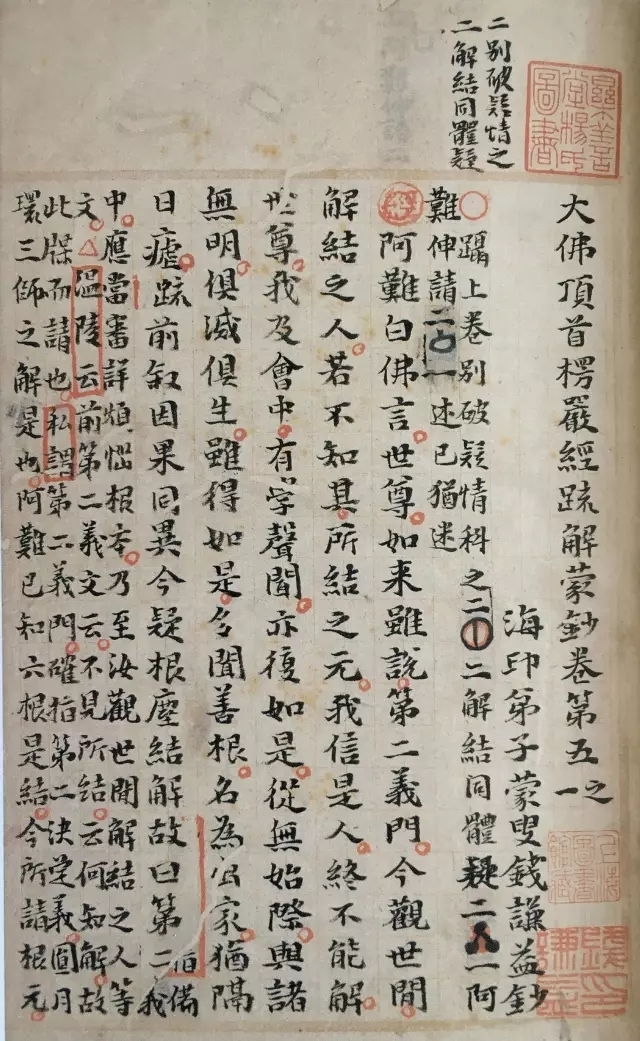 二別破疑情之
二解結同體疑
大佛頂首楞嚴經䟽解蒙鈔卷第五之一
海印弟子蒙叟錢謙益鈔
○躡上卷別破疑情科之二 二解結同體疑二 一阿
難伸請二 一述已猶迷
經 阿難白佛言世尊如來雖說第二義門今觀世間
解結之人若不知其所結之元我信是人終不能解
世尊我及會中有學聲聞亦復如是從無始際與諸
無明俱滅俱生雖得如是多聞善根名為出家猶隔
日瘧䟽前叙因果同異今疑根塵結解故曰第二
中應當審詳煩惱根本乃至汝觀世間解結之人等
文△溫陵云前第二義文云不見所結云何知解故
此牒而請也私謂第二義門確指第二決定義圓月
環三師之解是也阿難已知六根是結今所請根元